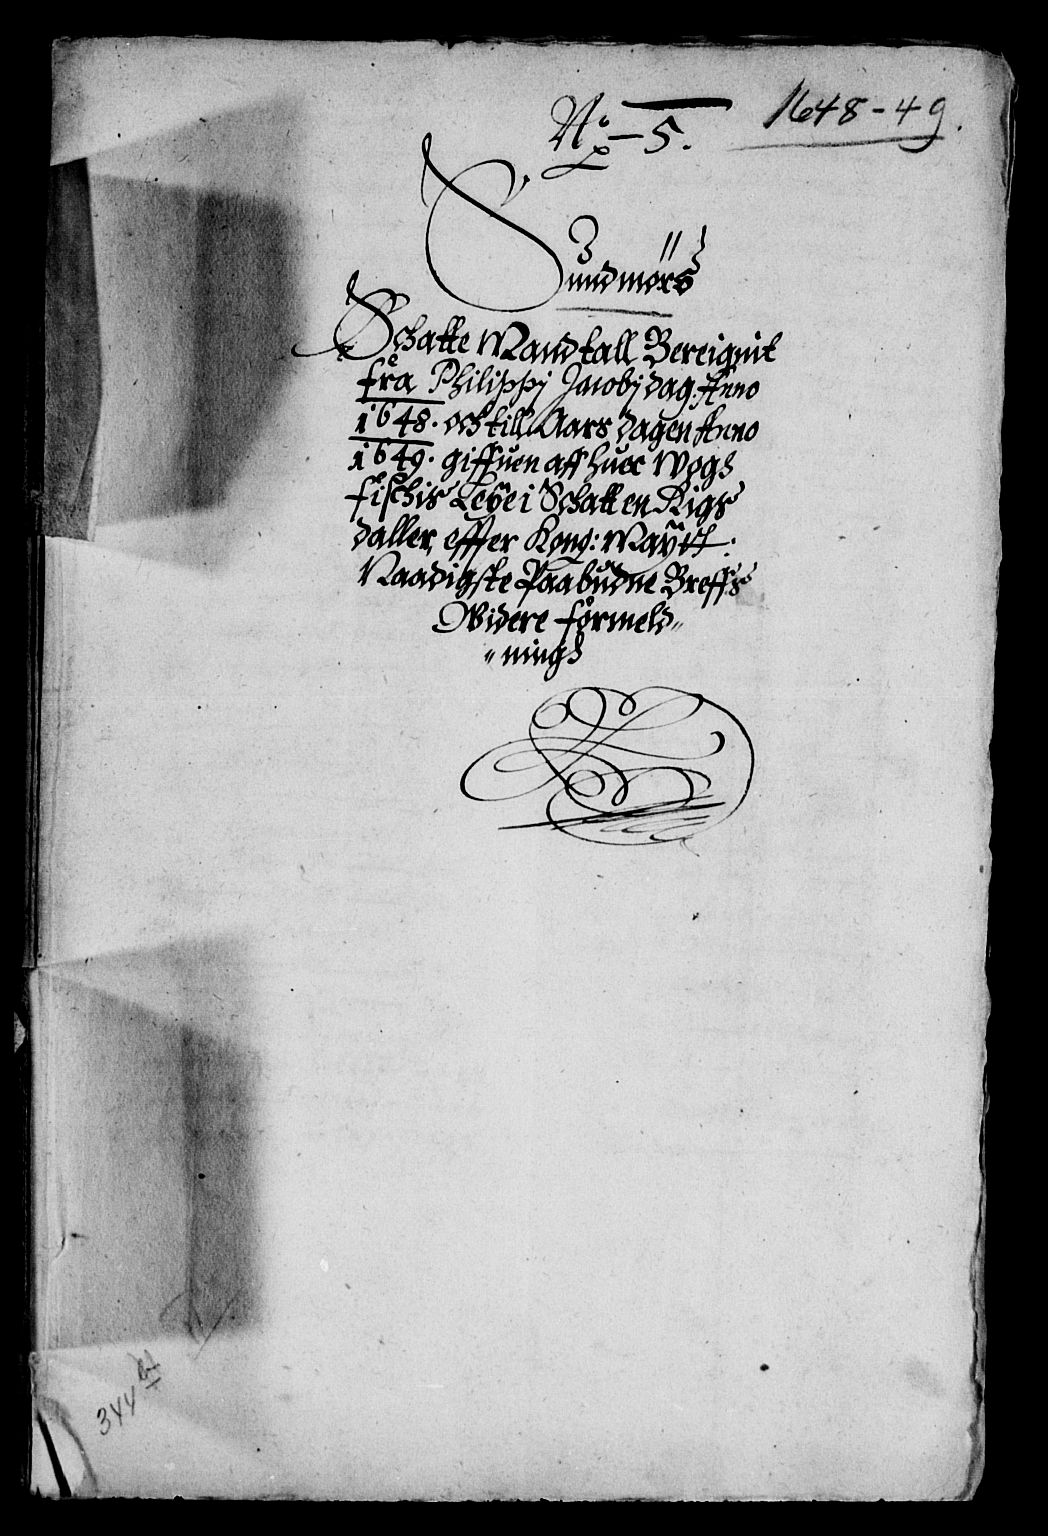 No – 5.
1648-49.
Sundmørs
Schatte Mandtall Bereignit
fra Philippj Jacobj dag Anno
1648. och till Aars dagen Anno
1649. giffuen aff huer Wogs
fischis Leye i Schatten Rigs
daller, effter Kong: Mayst:
Naadigste Paabudne Breffs
Widere formeld„
„nings
344